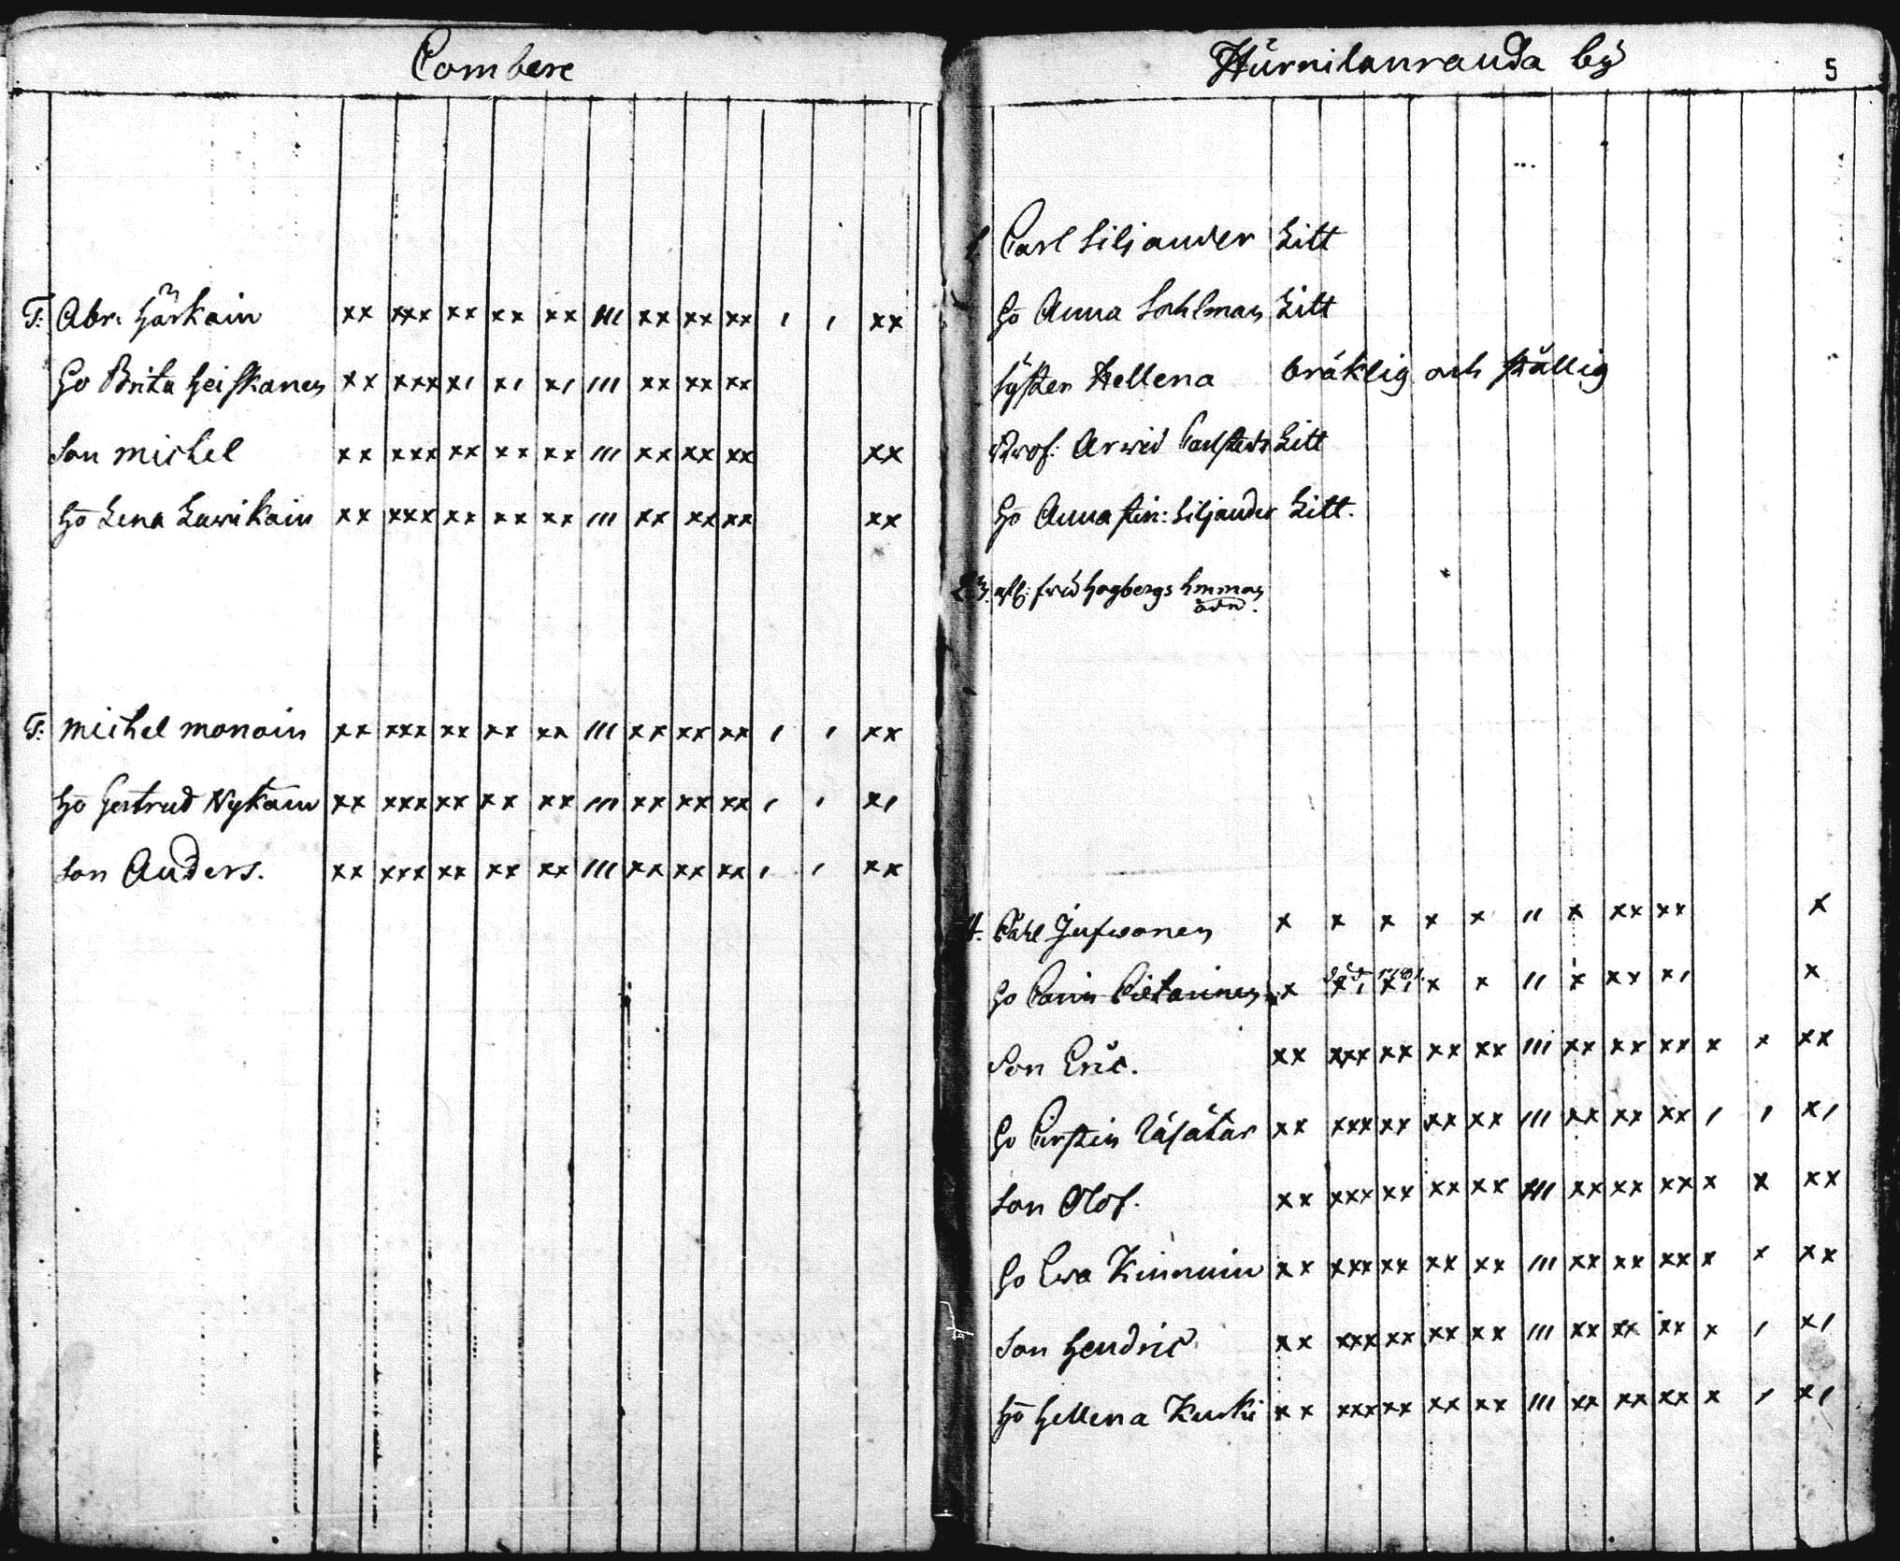 Combere
T: Abr: Härkäin xx xxx xx xx xx /// xx xx xx / / xx
Ho Brita Heiskanen xx xxx x/ x/ x/ /// xx xx xx
Son Michel xx xxx xx xx xx /// xx xx xx xx
Ho Lena Lawikain xx xxx xx xx xx /// xx xx xx xx
T: Michel Monoin xx xxx xx xx xx /// xx xx xx / / xx
Ho Gertrud Nykäin xx xxx xx xx xx /// xx xx xx / / x/
Son Anders. xx xxx xx xx xx /// xx xx xx / / xx
Hurnilanrauda by 5
1. Carl Siljander Litt
Ho Anna Sahlman Litt
Syster Hellena bräklig och ställig
Prof: Arwid Carlstedt Litt
Ho Anna Stin: Siljander Litt.
2.3. Fred Hagbergs Hmman
öde.
4. Påhl Jufwonen x x x x x // x xx xx x
Ho Carin Pietarinen x x/ x/ x x // x xx x/ x
död 1781.
Son Eric. xx xxx xx xx xx /// xx xx xx x x xx
Ho Kirstin Väsätär xx xxx xx xx xx /// xx xx xx / / x/
Son Olof. xx xxx xx xx xx /// xx xx xx x x xx
Ho Ewa Kinnuin xx xxx xx xx xx /// xx xx xx x x xx
Son Hendric xx xxx xx xx xx /// xx xx xx x / x/
Ho Hellena Kurki xx xxx xx xx xx /// xx xx xx x / x/